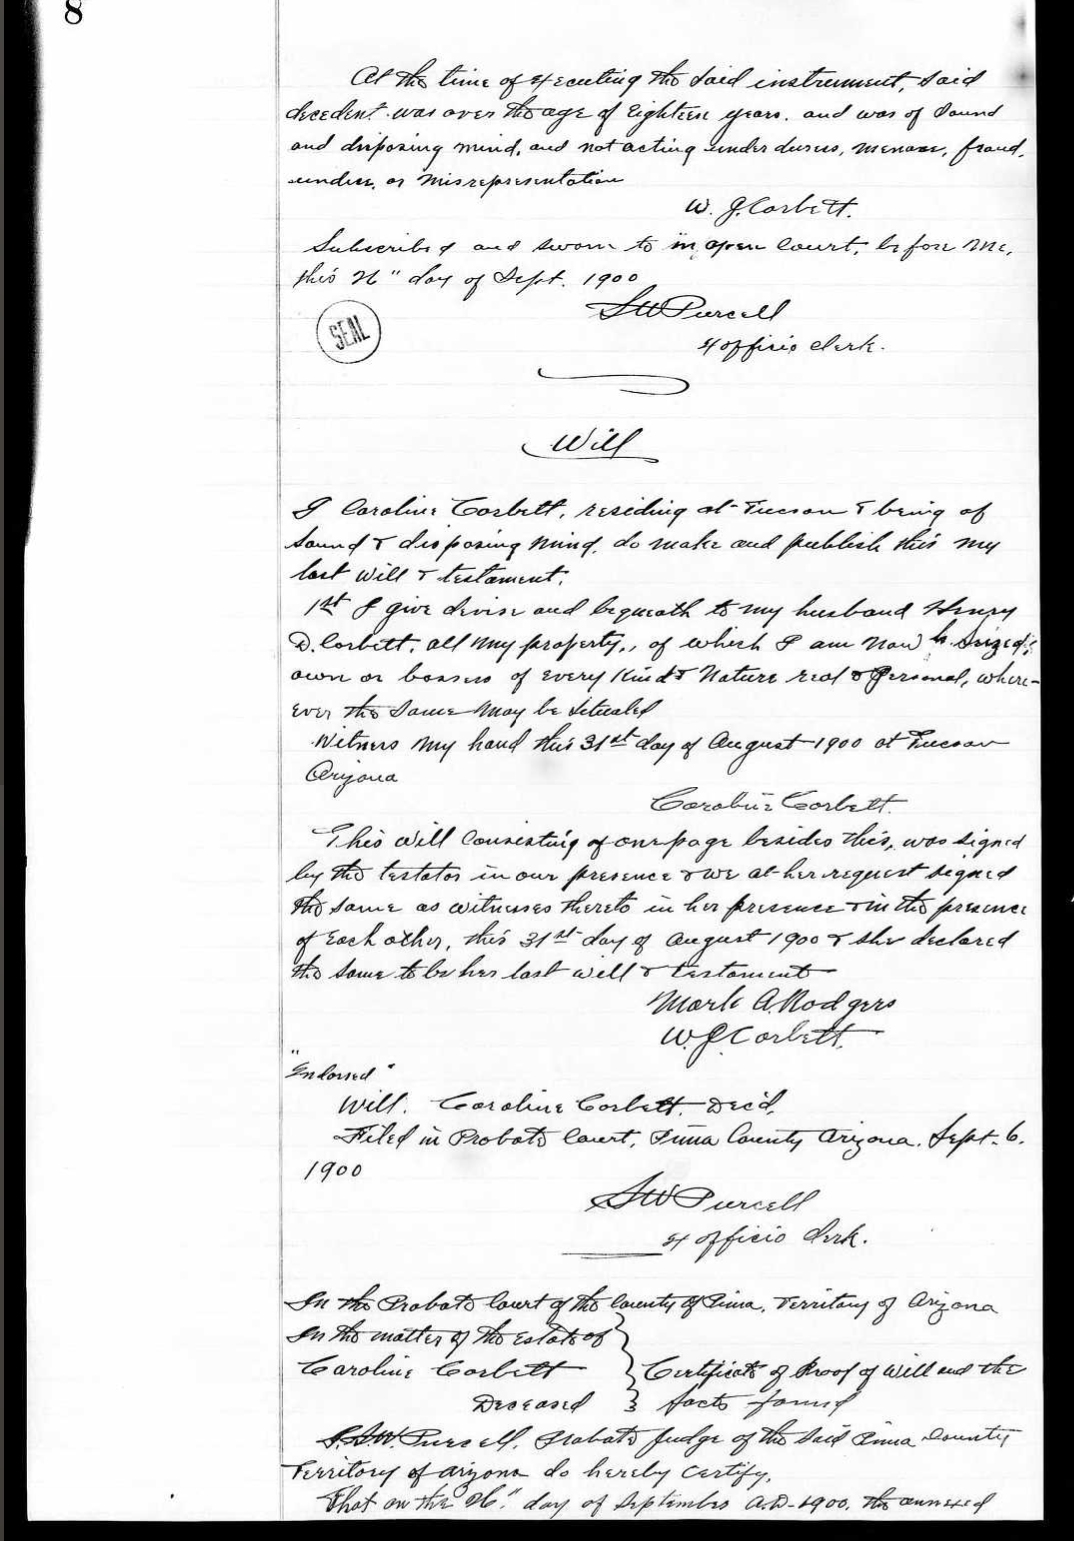 8
At the time of executing the said instrument, said
decedent was over the age of Eighteen years. and was of sound
and disposing mind, and not acting under duress, menace, fraud,
undue, or misrepresentation
W. J. Corbett.
Subscribed and sworn to in open Court, before me,
this 26" day of Sept. 1900
SEAL
S W Purcell
Ex officio Clerk.
Will
I Caroline Corbett, residing at Tucson & being of
sound & disposing mind, do make and publish this my
last will & testament.
1st I give devise and bequeath to my husband Henry
D. Corbett, all my property, of which I am now seized,
own or possess of every Kind & Nature real & Personal, where-
ever the same may be situated
Witness my hand this 31st day of August 1900 at Tucson
Arizona
Caroline Corbett.
This will consisting of one page besides this, was signed
by the testator in our presence & we at her request signed
the same as witnesses thereto in her presence & in the presence
of each other, this 31st day of August 1900 & she declared
the same to be her last will & testament
Mark A. Rodgers
W. J. Corbett.
"Endorsed"
Will. Caroline Corbett. Dec'd.
Filed in Probate Court, Pima County Arizona. Sept. 6.
1900
S W Purcell
Ex officio Clerk.
In the Probate Court of the County of Pima, Territory of Arizona
In the matter of the Estate of
Caroline Corbett } Certificate of Proof of Will and the
Deceased } facts found
I. S.W. Purcell, Probate Judge of the said Pima County
Territory of Arizona do hereby certify,
That on the 26." day of September A.D. 1900. the annexed